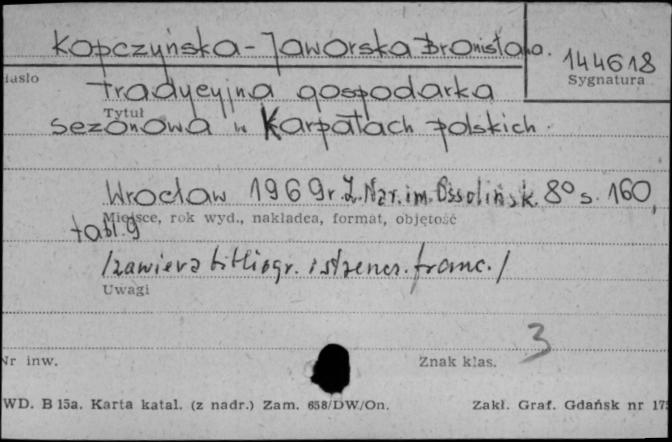 Kopczyńska-Jaworska Bronisława.
144618
iasło
Sygnatura
Tradycyjna gospodarka
Tytuł
sezonowa w Karpatach polskich.
Wrocław 1969r Z.Nar.im.Ossolińsk. 8° s. 160,
Miejsce, rok wyd., nakładca, format, objętość
tabl. 9
/zawiera bibliogr. i streszcz. franc./
Uwagi
3
Nr inw.
Znak klas.
WD. B 15a. Karta katal. (z nadr.) Zam. 658/DW/On.
Zakł. Graf. Gdańsk nr 175